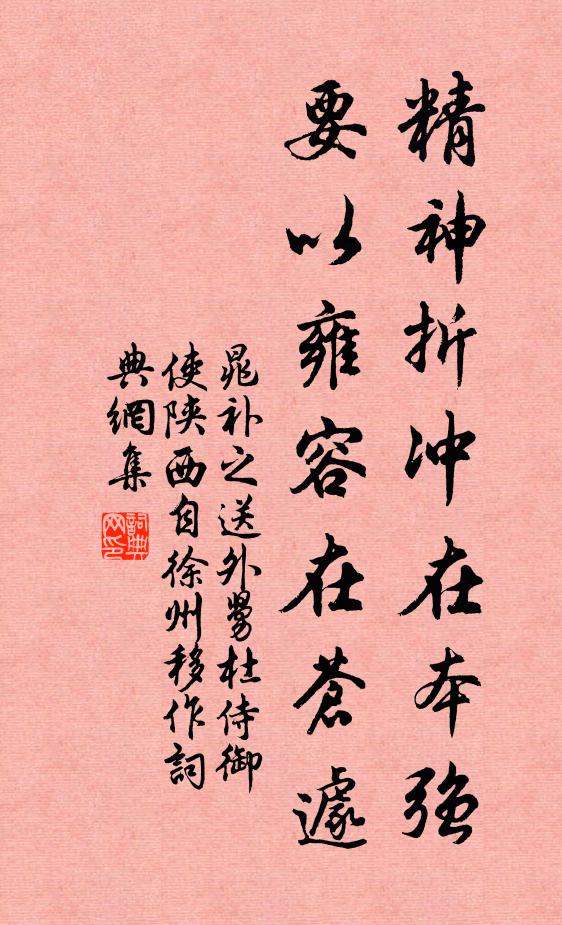 精神折冲在本強
要以雍容在蒼遽
晁补之送外舅杜侍御
使陕西自徐州移作詞
典網集
詞典网印